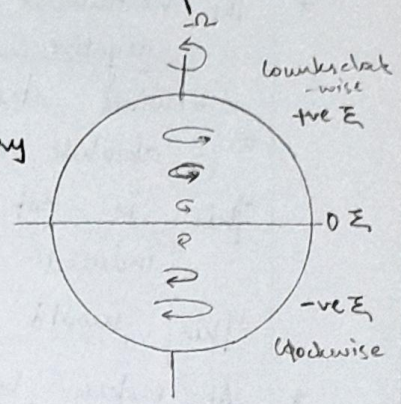 Ω
Counterclock
-wise
+ve ξ
0 ξ
-ve ξ
Clockwise